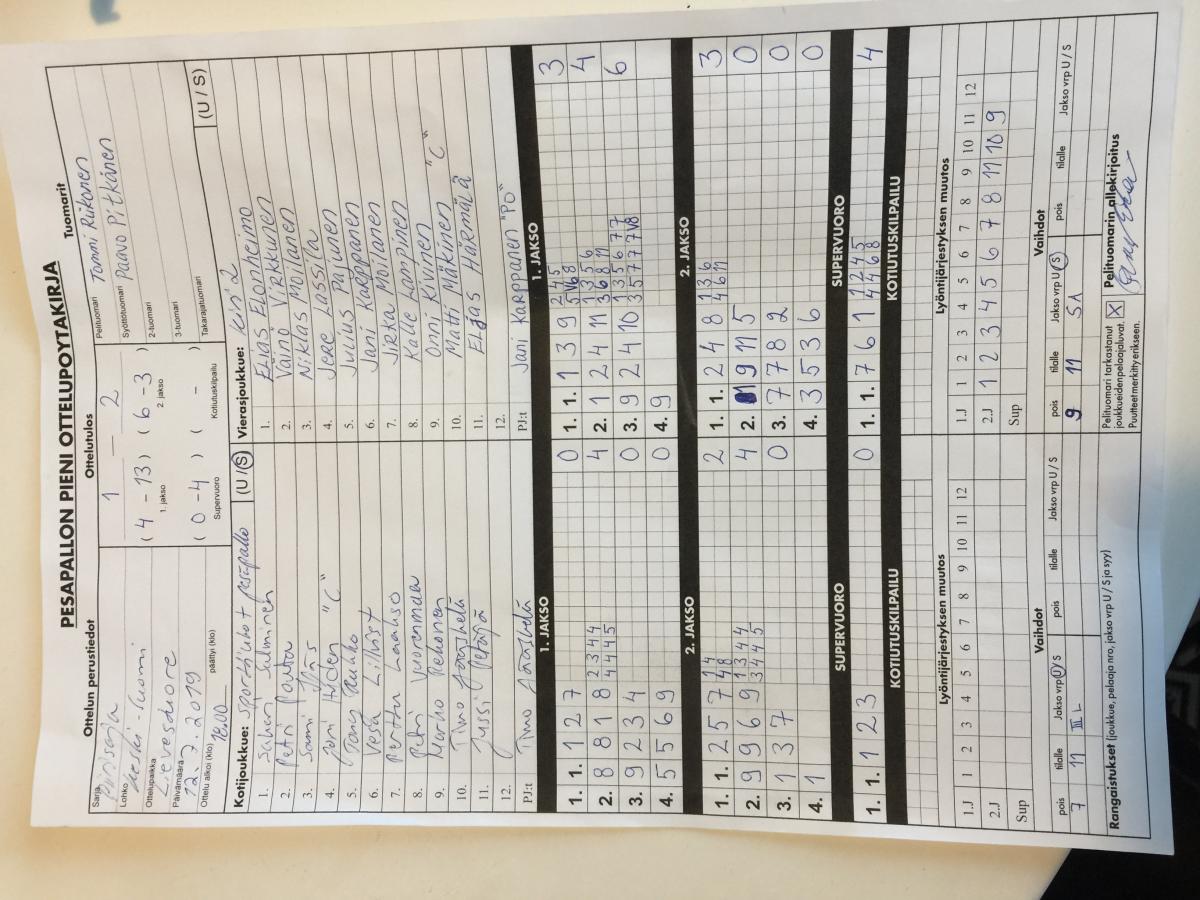 PESÄPALLON PIENI OTTELUPÖYTÄKIRJA
Ottelun perustiedot
Ottelutulos
Tuomarit
Sarja
Lohko Keski-Suomi
Ottelupaikka Lievestuore
Päivämäärä 12.7.2019
Ottelu alkoi (klo) 18.00 päättyi (klo)
1 — 2
( 4 - 13 ) ( 6 - 3 )
1. jakso 2. jakso
( 0 - 4 ) ( - )
Supervuoro Kotiutuskilpailu
Pelituomari Tommi Riikonen
Syöttötuomari Paavo Pitkänen
2-tuomari
3-tuomari
Takarajatuomari
Kotijoukkue: (U / S)
1. Sakari Salminen
2. Petri Pouta
3. Sami
4. "C"
5.
6. Vesa
7. Perttu
8. Petri Vuorenmaa
9. Marko Rekonen
10. Timo Jääskelä
11. Jussi Petäjä
12.
PJ:t Timo Jääskelä
Vierasjoukkue: Kiri 2 (U / S)
1. Elias Elonheimo
2. Väinö Virkkunen
3. Niklas Moilanen
4. Jere Lassila
5. Julius Parjunen
6. Jani Karppanen
7. Jirka Moilanen
8. Kalle Lampinen
9. Anni Kivinen
10. Matti Mäkinen "C"
11. Elias Häkämälä
12.
PJ:t Jani Karppanen "PO"
1. JAKSO
1. 1. 1 2 7 0
2. 8 8 1 8 2 3 4 4 4
4 4 4 5
3. 9 2 3 4 0
4. 5 5 6 9 0
1. JAKSO
1. 1. 1 3 9 2 4 5 3
5 V6 8
2. 1 2 4 11 1 3 5 6 4
3 6 8 11
3. 9 2 4 10 1 3 5 6 7 7 6
3 5 7 7 7 V8
4. 9
2. JAKSO
1. 1. 2 5 7 1 4 2
4 8
2. 9 9 6 9 1 3 4 4 4
3 4 4 5
3. 1 3 7 0
4. 1
2. JAKSO
1. 1. 2 4 8 1 3 6 3
4 6 11
2. 9 11 5 0
3. 7 7 8 2 0
4. 3 5 3 6 0
SUPERVUORO
1. 1. 1 2 3 0
SUPERVUORO
1. 1. 7 6 1 1 2 4 5 4
4 4 6 8
KOTIUTUSKILPAILU
KOTIUTUSKILPAILU
Lyöntijärjestyksen muutos
1.J 1 2 3 4 5 6 7 8 9 10 11 12
2.J
Sup
Vaihdot
pois tilalle Jakso vrp U / S pois tilalle Jakso vrp U / S
7 11 III L
Lyöntijärjestyksen muutos
1.J 1 2 3 4 5 6 7 8 9 10 11 12
2.J 1 2 3 4 5 6 7 8 11 10 9
Sup
Vaihdot
pois tilalle Jakso vrp U / S pois tilalle Jakso vrp U / S
9 11 S1
Rangaistukset (joukkue, pelaaja nro, jakso vrp U / S ja syy)
Pelituomari tarkastanut
joukkueidenpelaajaluvat.
Puutteet merkitty erikseen.
X
Pelituomarin allekirjoitus